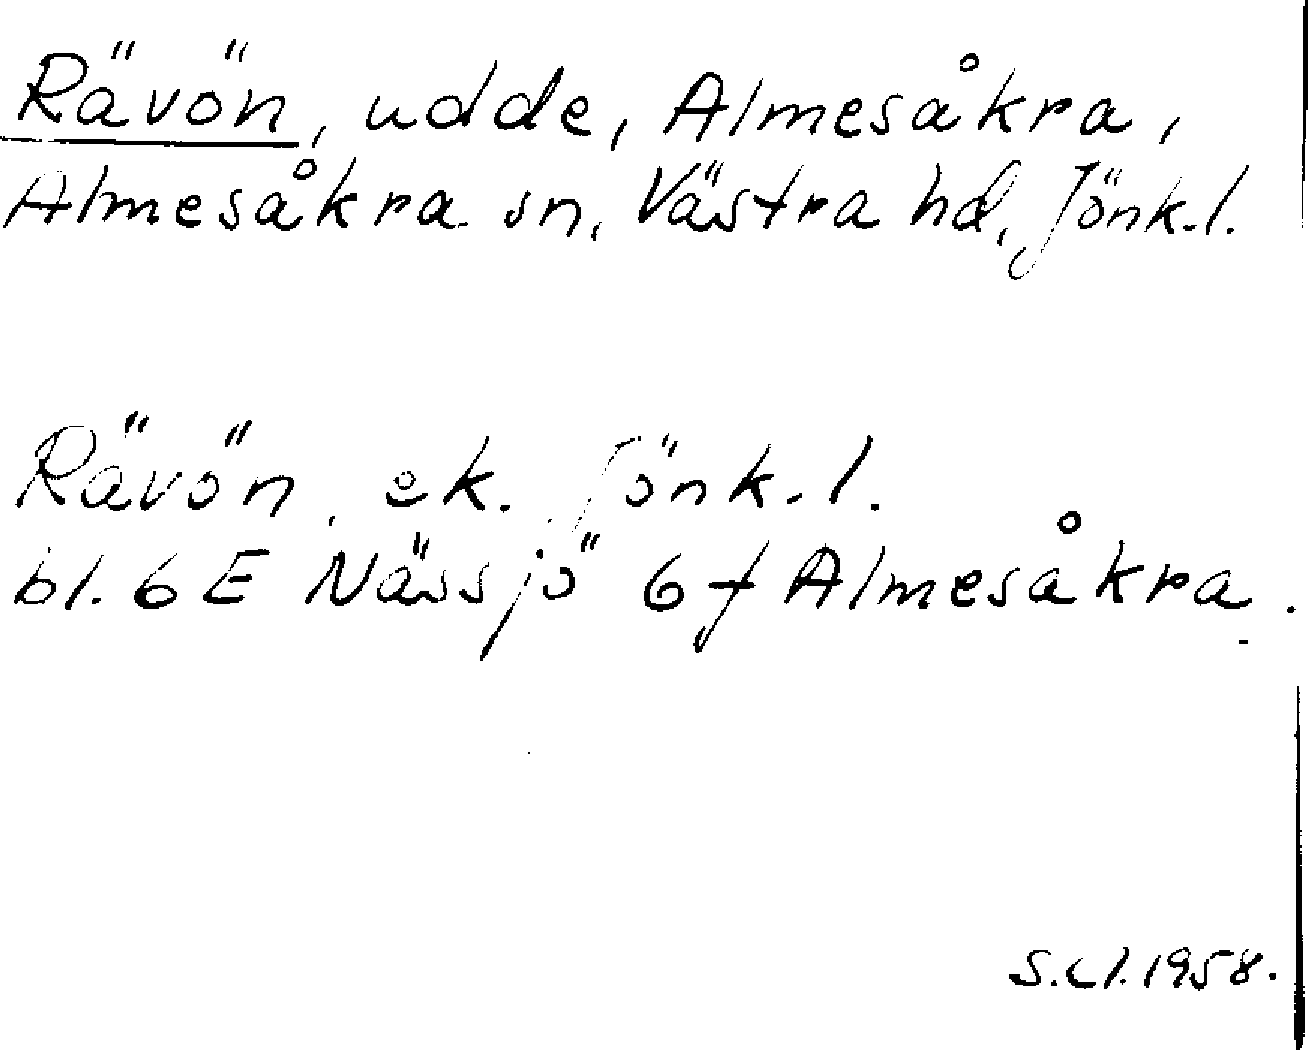 Rävön, udde, Almesåkra,
Almesåkra sn, Västra hd, Jönk.l.
Rävön, ek. Jönk.l.
bl. 6 E Nässjö 6 f Almesåkra.
1958.